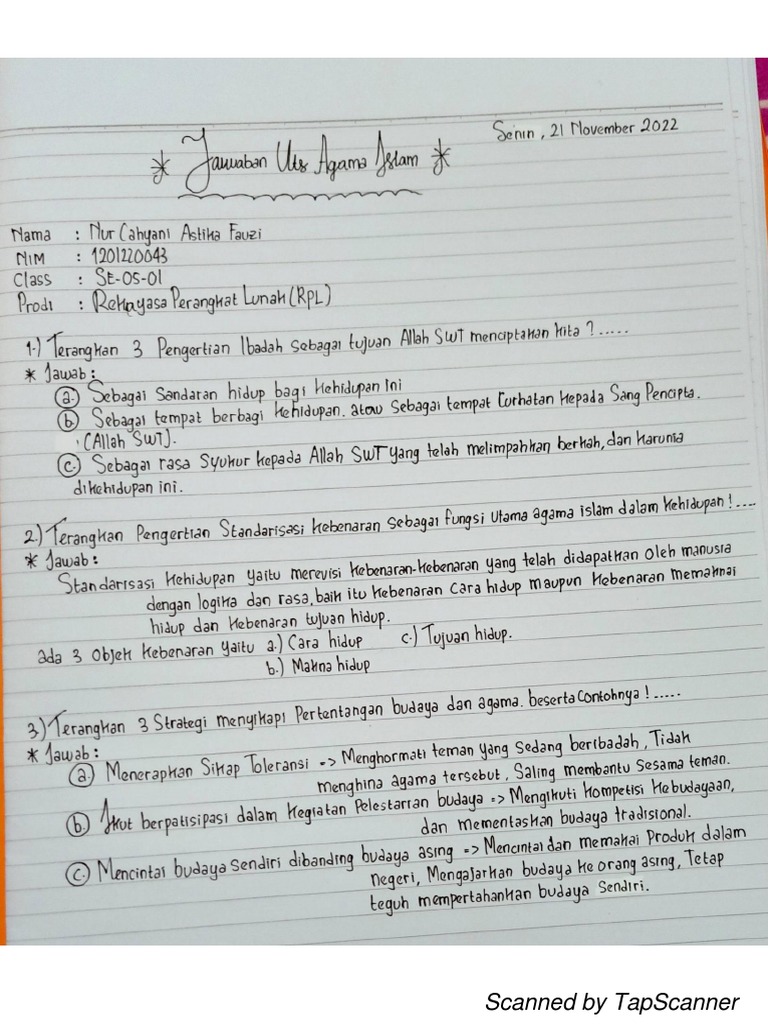 Senin, 21 November 2022
* Jawaban Uts Agama Islam *
Nama : Nur Cahyani Astika Fauzi
NIM : 1201220043
Class : SE-05-01
Prodi : Rekayasa Perangkat Lunak (RPL)
1.) Terangkan 3 Pengertian Ibadah sebagai tujuan Allah SWT menciptakan kita ? .....
* Jawab :
a.) Sebagai Sandaran hidup bagi kehidupan ini
b.) Sebagai tempat berbagi kehidupan. atau sebagai tempat Curhatan kepada Sang Pencipta.
(Allah SWT).
c.) Sebagai rasa Syukur kepada Allah SWT yang telah melimpahkan berkah, dan karunia
dikehidupan ini.
2.) Terangkan Pengertian Standarisasi kebenaran sebagai fungsi Utama agama islam dalam kehidupan ! ....
* Jawab :
Standarisasi kehidupan yaitu merevisi kebenaran-kebenaran yang telah didapatkan oleh manusia
dengan logika dan rasa, baik itu kebenaran cara hidup maupun kebenaran memaknai
hidup dan kebenaran tujuan hidup.
ada 3 objek kebenaran yaitu a.) Cara hidup c.) Tujuan hidup.
b.) Makna hidup
3.) Terangkan 3 Strategi menyikapi Pertentangan budaya dan agama. beserta Contohnya ! .....
* Jawab :
a.) Menerapkan Sikap Toleransi => Menghormati teman yang sedang beribadah, Tidak
menghina agama tersebut, Saling membantu Sesama teman.
b.) Ikut berpatisipasi dalam kegiatan Pelestarian budaya => Mengikuti kompetisi kebudayaan,
dan mementaskan budaya tradisional.
c.) Mencintai budaya sendiri dibanding budaya asing => Mencintai dan memakai Produk dalam
negeri, Mengajarkan budaya ke orang asing, Tetap
teguh mempertahankan budaya Sendiri.
Scanned by TapScanner